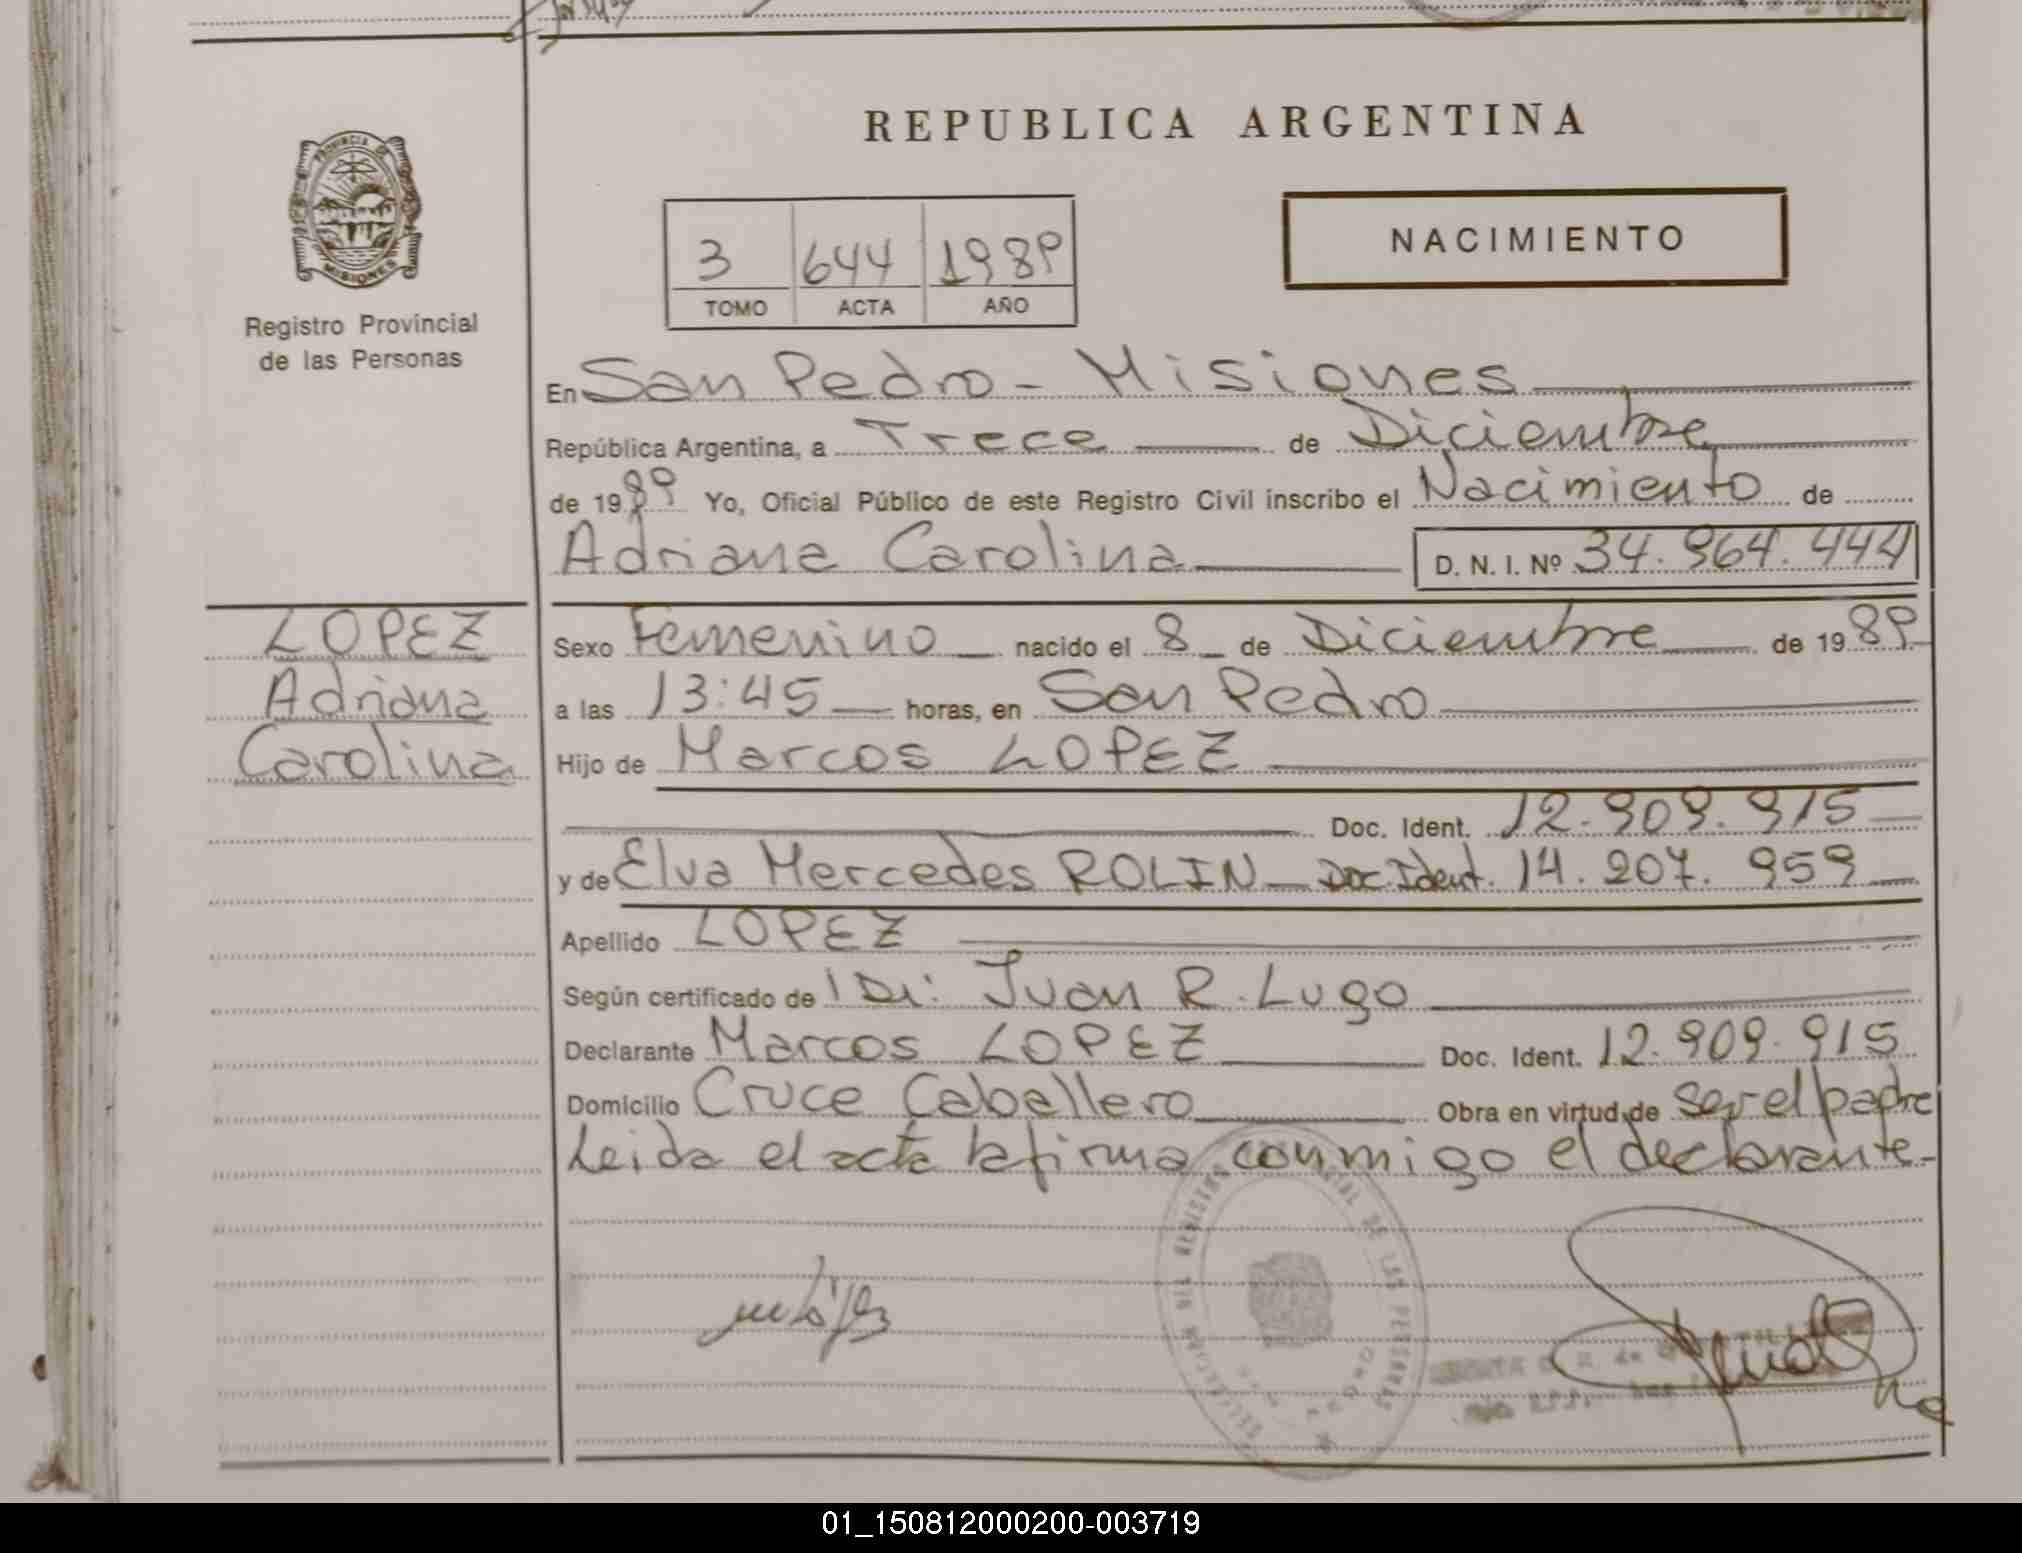 REPUBLICA ARGENTINA
PROVINCIA DE
MISIONES
Registro Provincial
de las Personas
3 644 1989
TOMO ACTA AÑO
NACIMIENTO
En San Pedro - Misiones
República Argentina, a Trece de Diciembre
de 1989 Yo, Oficial Público de este Registro Civil inscribo el Nacimiento de
Adriana Carolina D. N. I. Nº 34.964.444
LOPEZ
Adriana
Carolina
Sexo Femenino nacido el 8 de Diciembre de 1989
a las 13:45 horas, en San Pedro
Hijo de Marcos LOPEZ
Doc. Ident. 12.909.915
y de Elva Mercedes ROLIN Doc Ident. 14.207.959
Apellido LOPEZ
Según certificado de Dr: Juan R. Lugo
Declarante Marcos LOPEZ Doc. Ident. 12.909.915
Domicilio Cruce Caballero Obra en virtud de ser el padre
Leida el acta la firma conmigo el declarante-
DE LAS PERSONAS
01_150812000200-003719